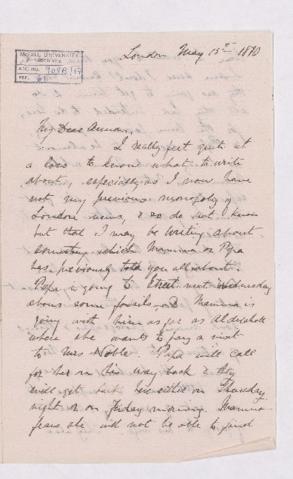 McGILL UNIVERSITY
ACC. NO.
REF.
London May 13th 1870
My Dear Anna,
I really feel quite at
a loss to know what to write
about, especially as I now have
not my previous monopoly of
London news, & so do not know
but that I may be writing about
something which Mamma or Papa
has previously told you all about.
Papa is going to next Wednesday
about some fossils, and Mamma is
going with him as far as Aldershott
where she wants to pay a visit
to Mrs Noble. Papa will call
for her on his way back & they
will get back here either on Thursday
night or on Friday morning. Mamma
fears she will not be able to find